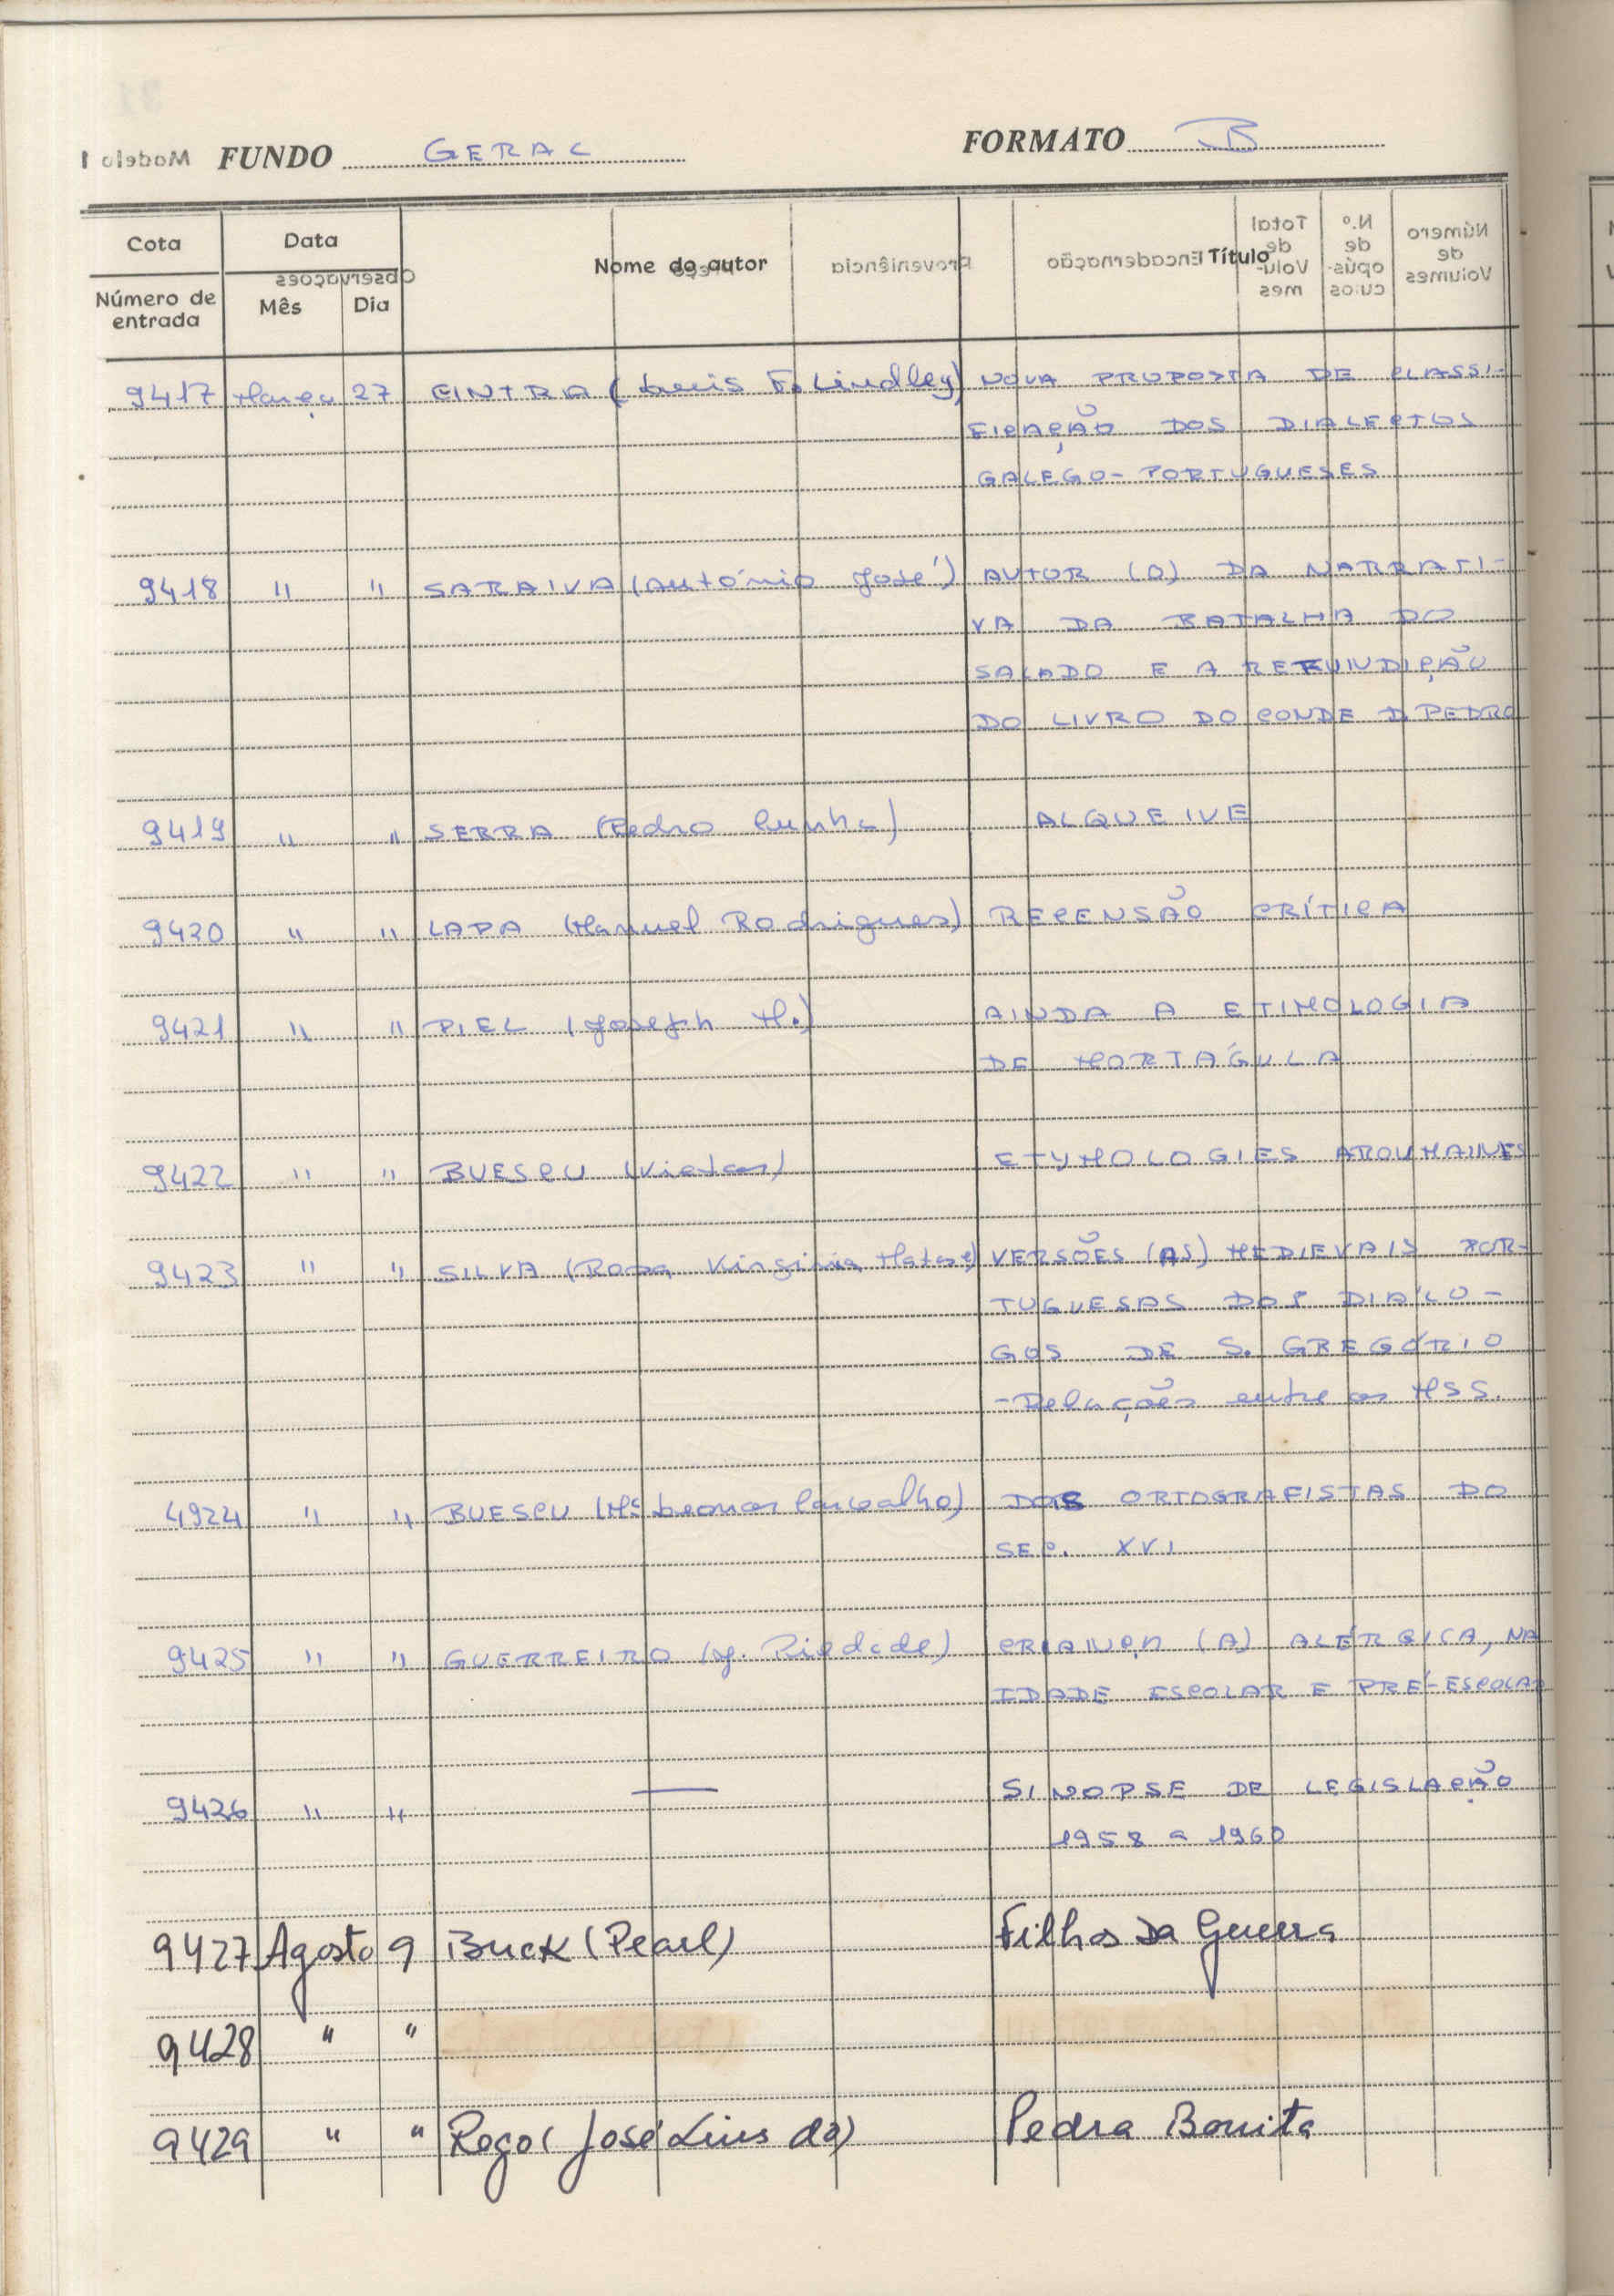 FUNDO GERAL FORMATO B
Modelo 1
Cota Data Nome do autor Título
Número de entrada Mês Dia
Observações Preço Proveniência Encadernação Total de Volu-mes N.º de opús-culos Número de Volumes
9417 Março 27 CINTRA (Luis F. Lindley) NOVA PROPOSTA DE CLASSI-
FICAÇÃO DOS DIALECTOS
GALEGO-PORTUGUESES
9418 " " SARAIVA (António José) AUTOR (O) DA NARRATI-
VA DA BATALHA DO
SALADO E A REFUNDIÇÃO
DO LIVRO DO CONDE D. PEDRO
9419 " " SERRA (Pedro Cunha) ALQUEIVE
9420 " " LAPA (Manuel Rodrigues) RECENSÃO CRÍTICA
9421 " " PIEL (Joseph M.) AINDA A ETIMOLOGIA
DE MORTÁGULA
9422 " " BUESCU (Victor) ETYMOLOGIES AROUMAINES
9423 " " SILVA (Rosa Virginia Matos) VERSÕES (AS) MEDIEVAIS POR-
TUGUESAS DOS DIÁLO-
GOS DE S. GREGÓRIO
-Relações entre os MSS.
4924 " " BUESCU (Mª Leonor Carvalho) DOIS ORTOGRAFISTAS DO
SEC. XVI
9425 " " GUERREIRO (J. Piedade) CRIANÇA (A) ALÉRGICA, NA
IDADE ESCOLAR E PRÉ-ESCOLAR
9426 " " — SINOPSE DE LEGISLAÇÃO
1958 a 1960
9427 Agosto 9 Buck (Pearl) Filhos Da Guerra
9428 " "
9429 " " Rego (José Lins do) Pedra Bonita